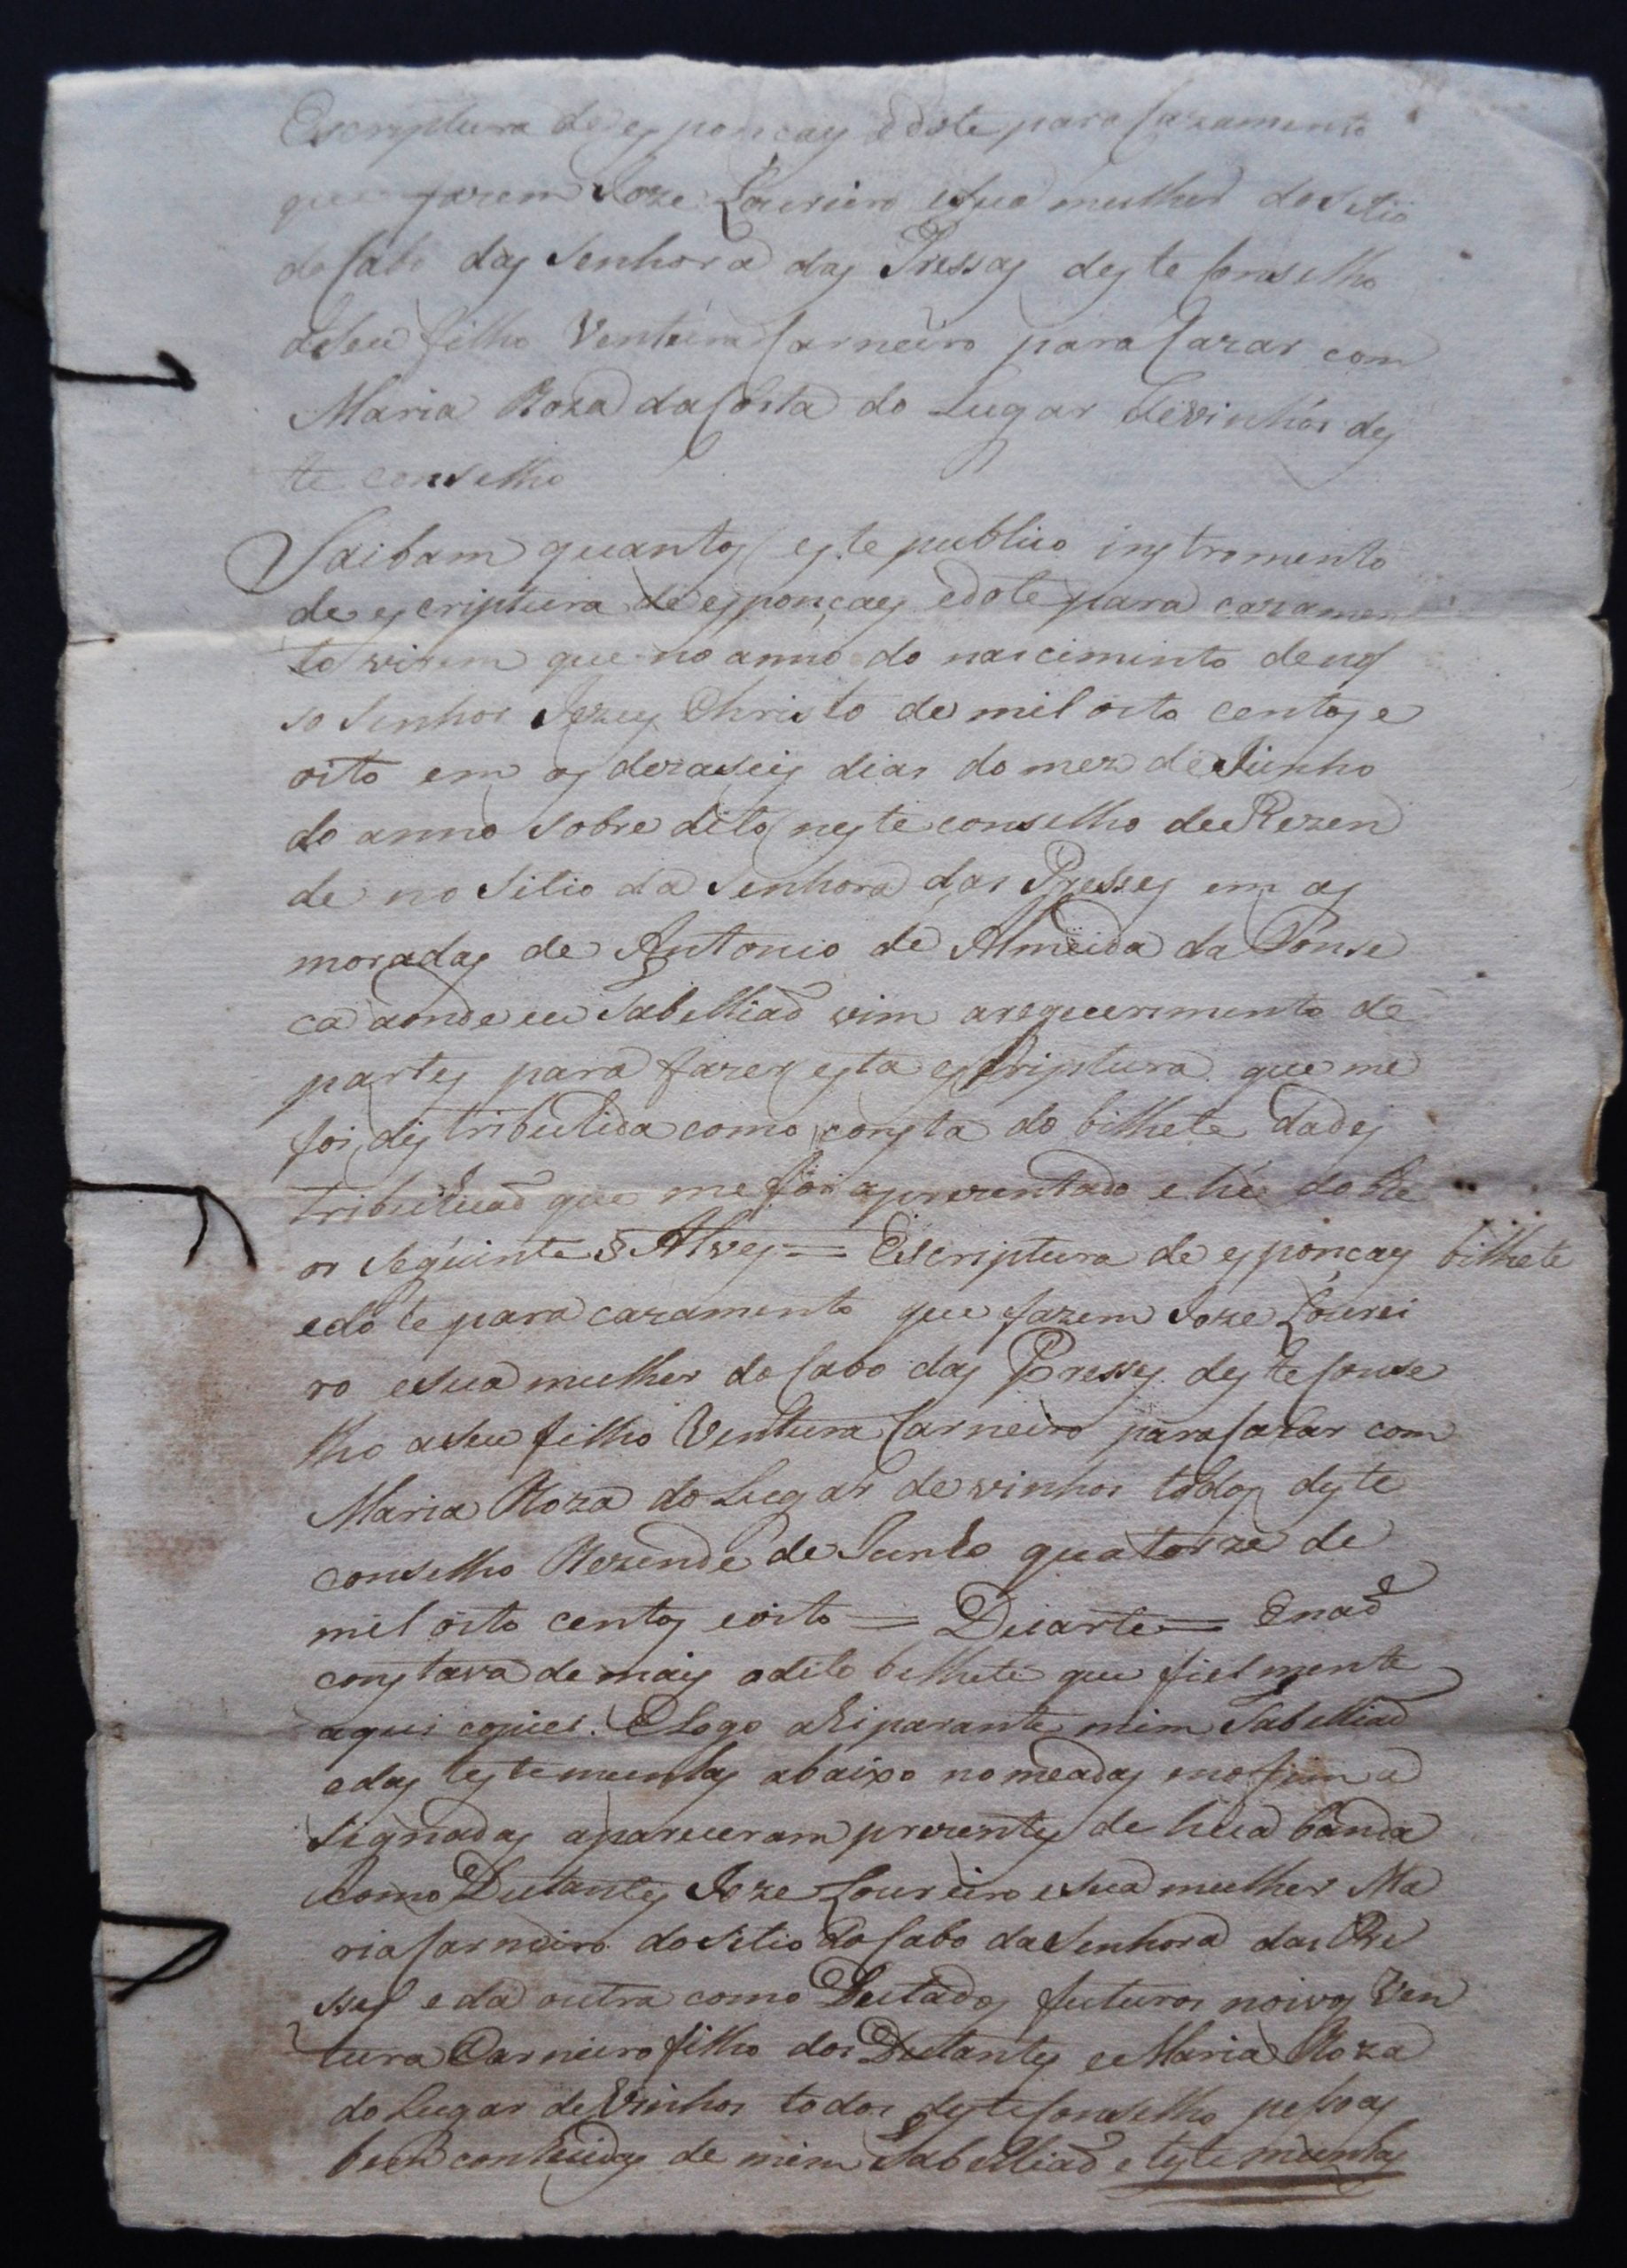 Escriptura de esponçaes e dote para cazamento
que fazem Joze Loureiro e sua mulher do sitio
do Cabo das Senhora das Pressas deste Conselho
a seu filho Ventura Carneiro para Cazar com
Maria Roza da Costa do Lugar de vinhos des
te conselho
Saibam quantos este publico instromento
de escriptura de esponçaes e dote para cazamen
to virem que no anno do nascimento de nos
so Senhor Jezus Christo de mil oito centos e
oito em os dezaseis dias do mez de Junho
do anno sobre dito neste conselho de Rezen
de no Sitio da Senhora das Presses em as
moradas de Antonio de Almeida da Fonse
ca aonde eu Tabelliaõ vim a requerimento de
partes para fazer esta escriptura que me
foi destribuida como consta do bilhete da des
tribuiçaõ que me foi aprezentado e hé do the
or seguinte § Alves = Escriptura de esponçaes bilhete
e dote para cazamento que fazem Joze Lourei
ro e sua mulher do Cabo das Presses deste Conse
lho a seu filho Ventura Carneiro para Cazar com
Maria Roza do Lugar de vinhos todos deste
conselho Rezende de Junho quatorze de
mil oito centos e oito = Duarte = E naõ
constava de mais o dito bilhete que fielmente
aqui copiei. E logo ahi parante mim Tabelliaõ
e das testemunhas abaixo nomeadas e no fim a
signadas apareceram prezentes de hua banda
como Dutantes Joze Loureiro e sua mulher Ma
ria Carneiro do sitio do Cabo da Senhora das Pre
sses e da outra como Dutados futuros noivos Ven
tura Carneiro filho dos Dutantes e Maria Roza
do Lugar de Vinhos todos deste Conselho pessoas
bem conhecidas de mim Tabelliaõ e testemunhas